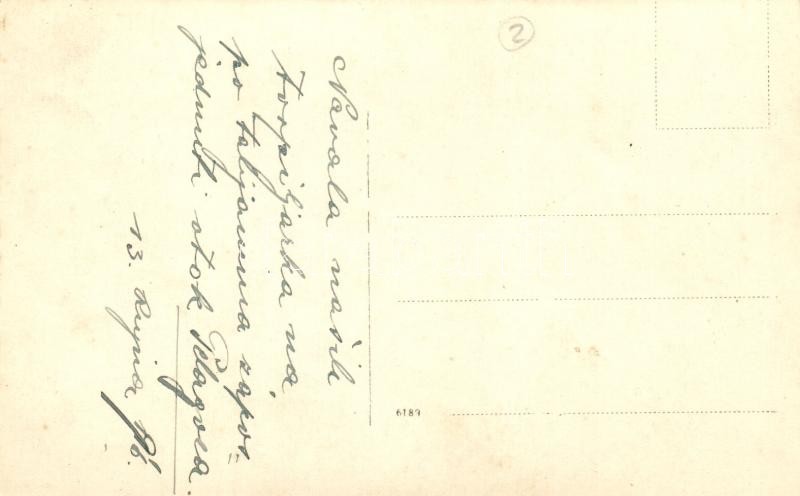 Navala naših
torpiljarka na
po talijanima zapos=
jednuti otok Pelagosa.
13. Rujna
2
6189